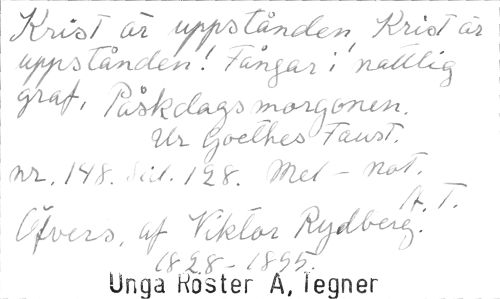 Krist är uppstånden, Krist är
uppstånden! Fångar i nattlig
graf, Påskdagsmorgonen.
Ur Goethes Faust.
nr. 148. Sid. 128. Mel – not.
A. T.
Öfvers. af Viktor Rydberg.
1828–1895.
Unga Röster A, Tegner